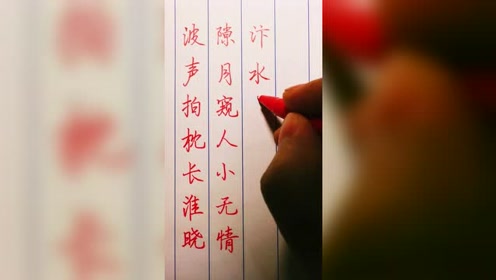 波声拍枕长淮晓
隙月窥人小无情
汴水